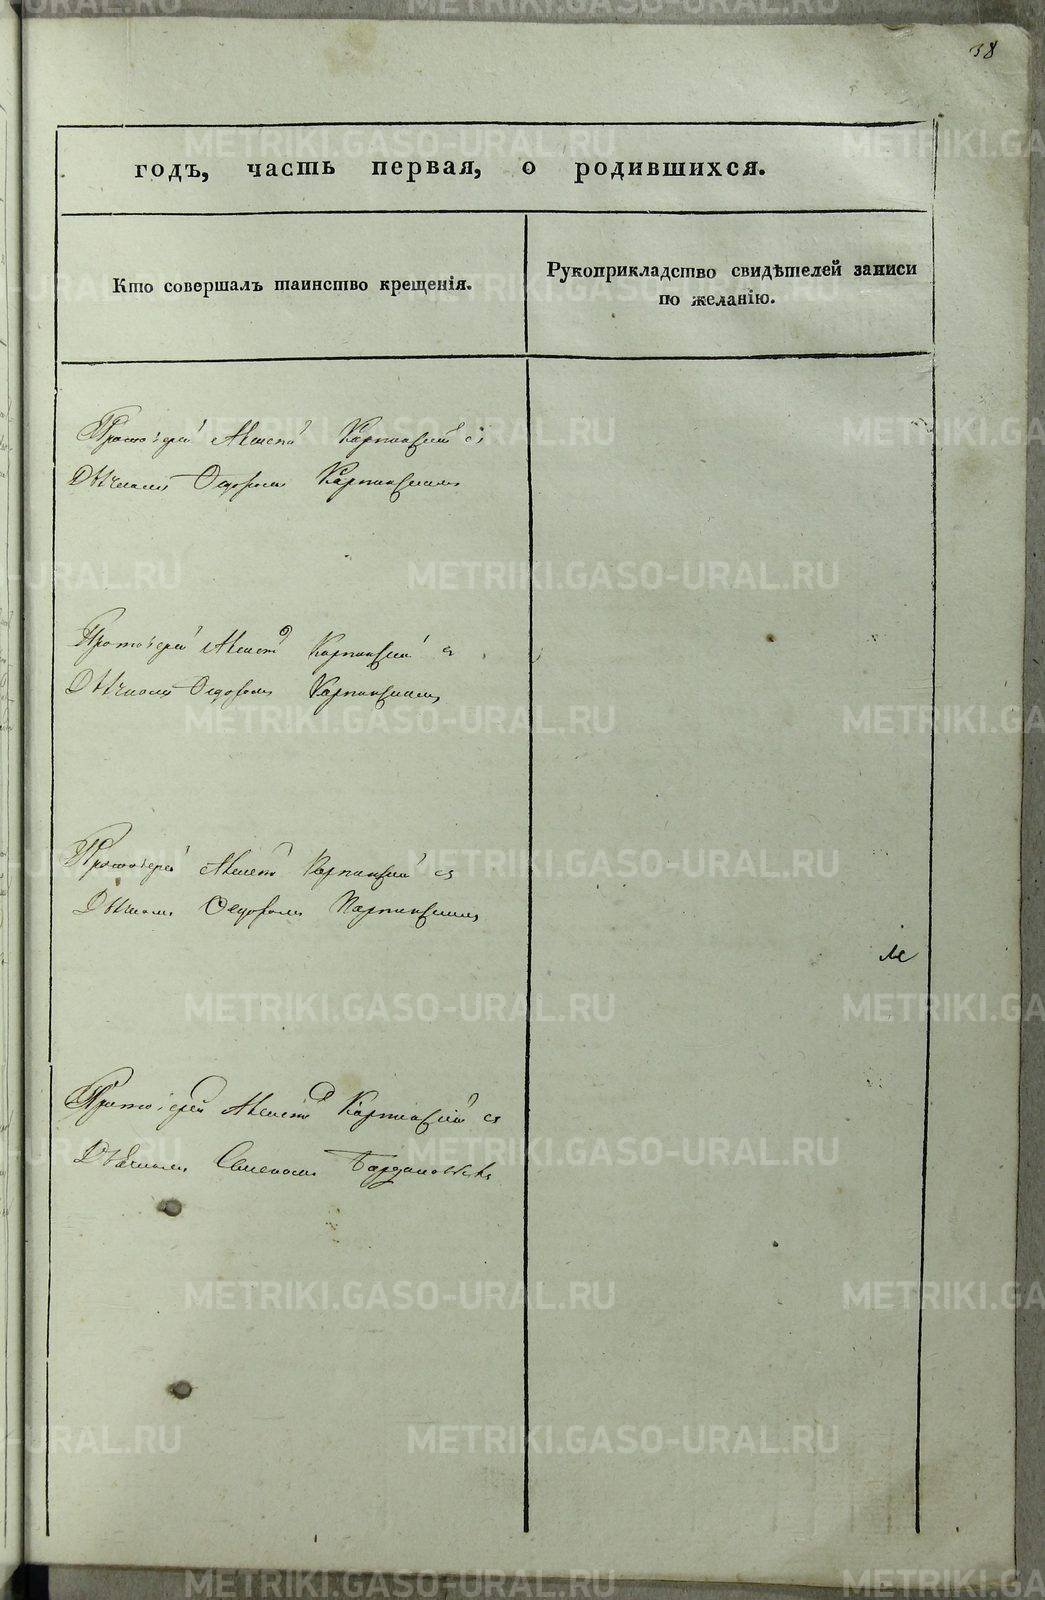 38
годъ, часть первая, о родившихся.
Кто совершалъ таинство крещенія.
Рукоприкладство свидѣтелей записи
по желанію.
Протоіерей Карпинскій съ
Дьячкомъ Федоромъ Карпинскимъ
Протоіерей Карпинскій съ
Дьячкомъ Федоромъ Карпинскимъ
Протоіерей Карпинскій съ
Дьячкомъ Федоромъ Карпинскимъ
Протоіерей Карпинскій съ
Дьячкомъ
METRIKI.GASO-URAL.RU